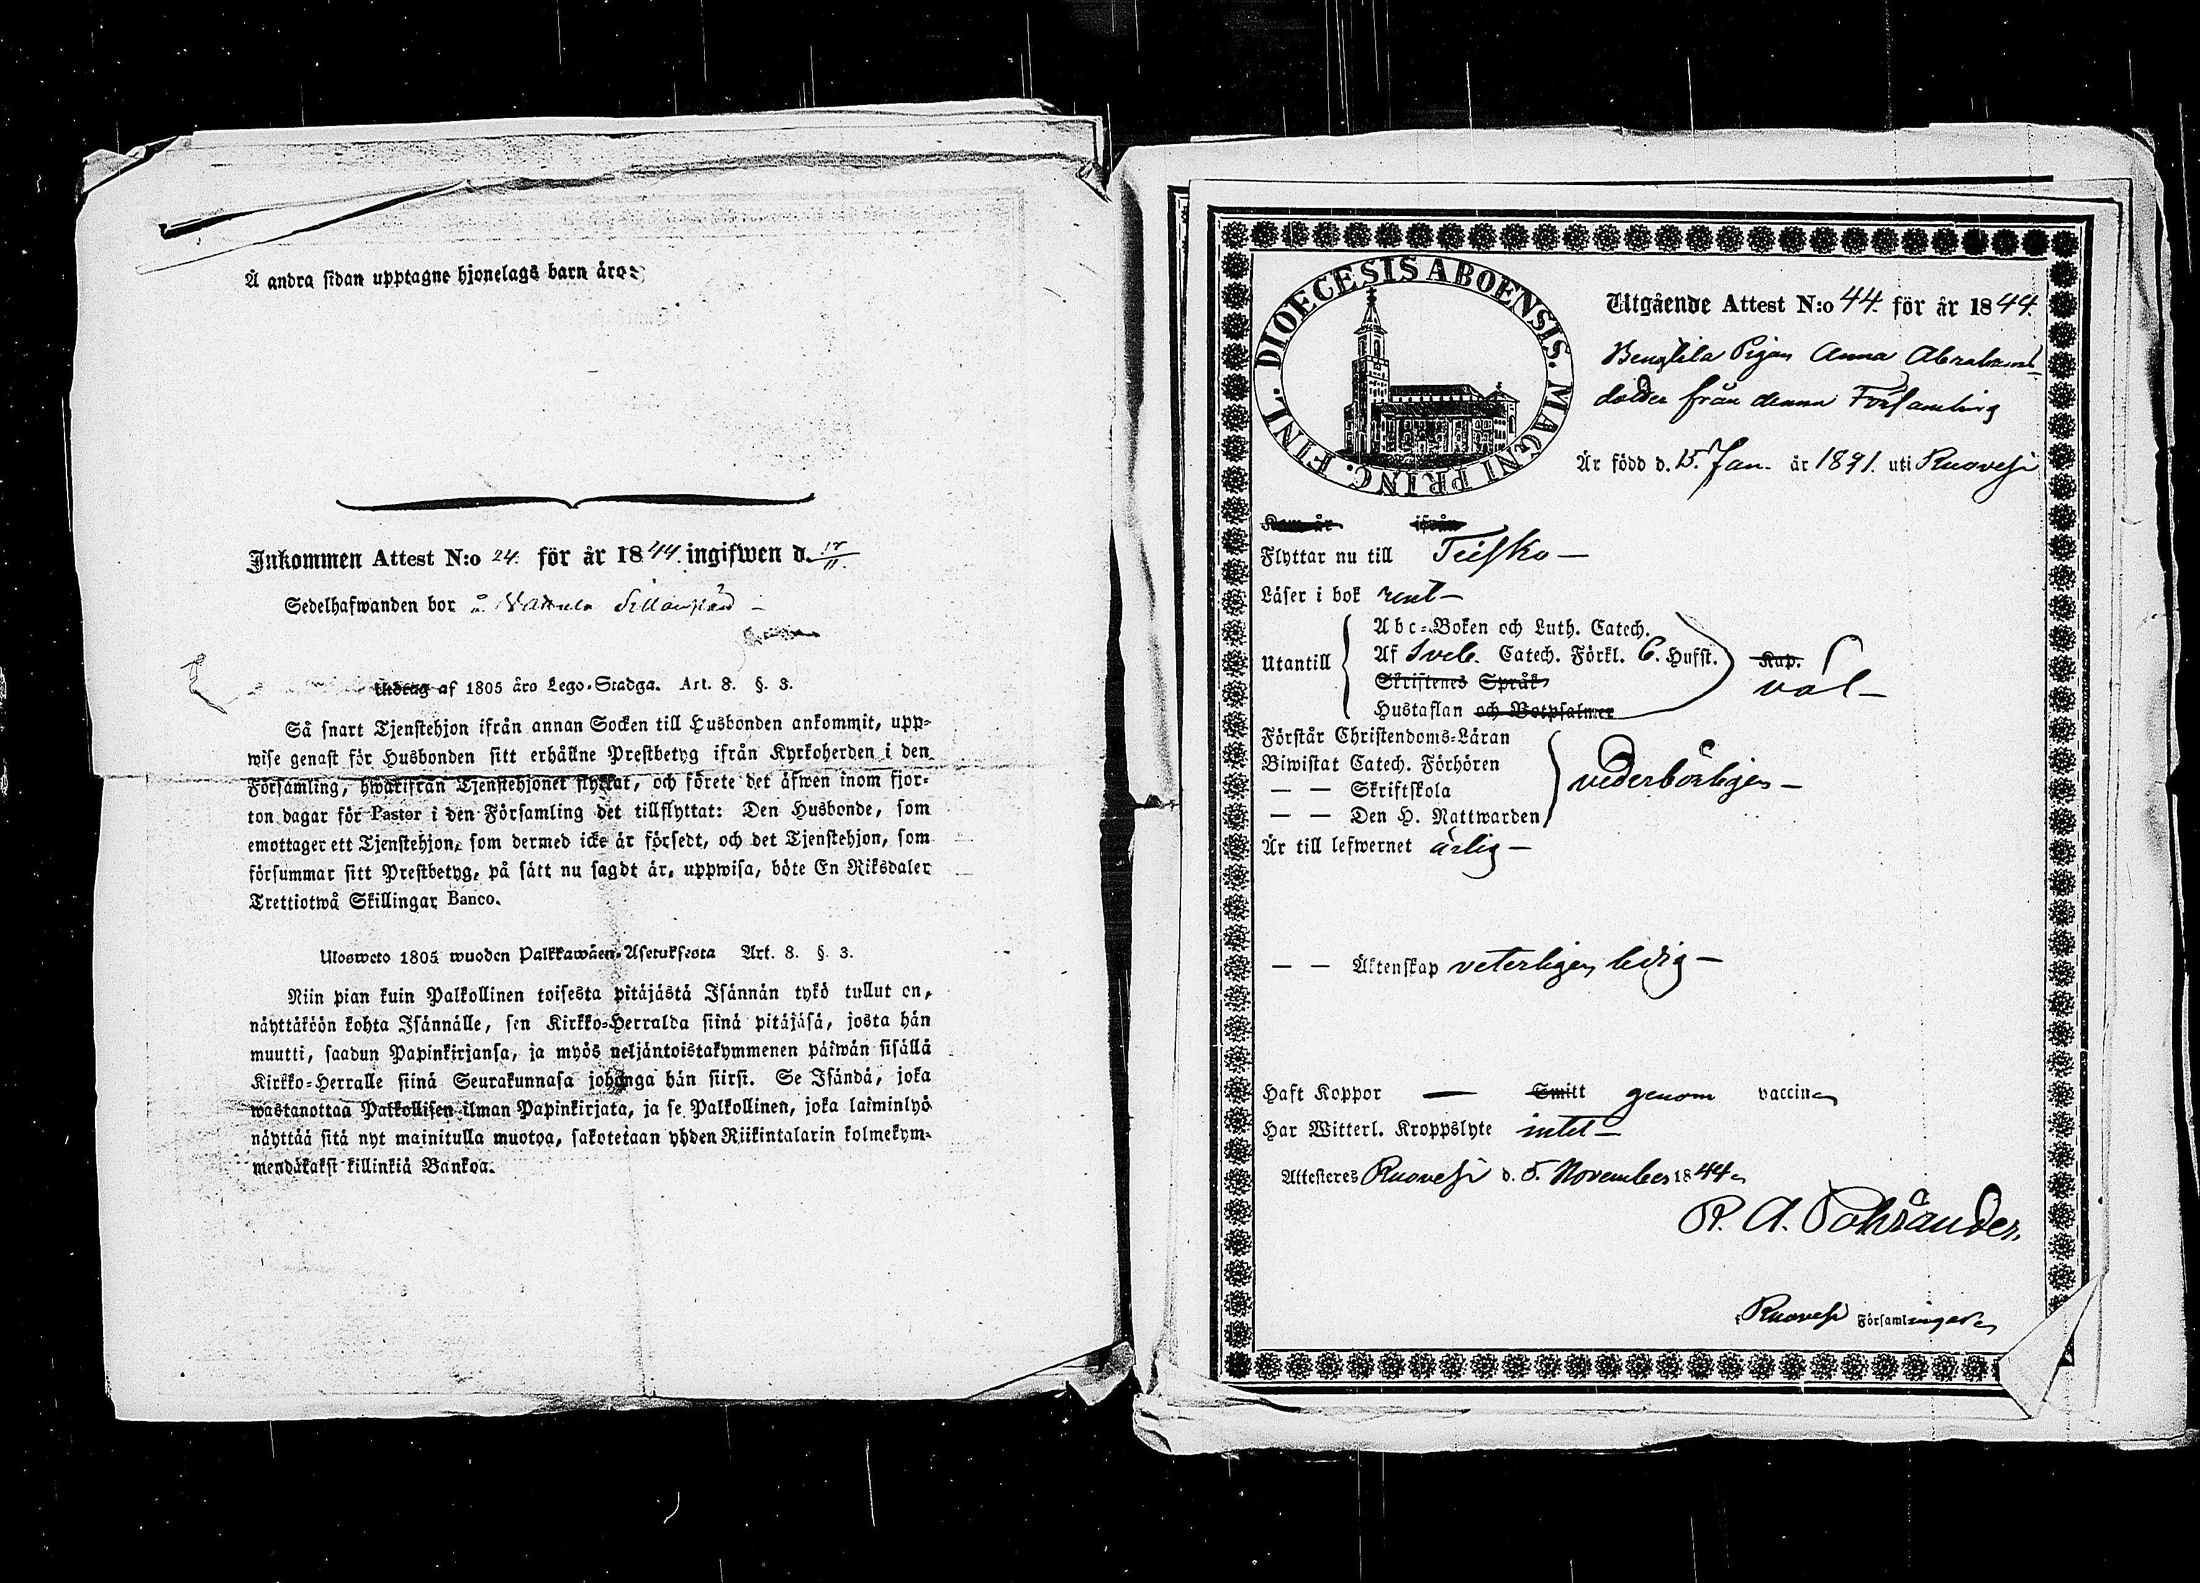 Å andra sidan upptagne hjonelags barn äro:
Inkommen Attest N:o 24. för år 1844. ingifwen d. 17/11.
Sedelhafwanden bor å
Utdrag af 1805 års Lego-Stadga. Art. 8. §. 3.
Så snart Tjenstehjon ifrån annan Socken till Husbonden ankommit, upp-
wise genast för Husbonden sitt erhållne Prestbetyg ifrån Kyrkoherden i den
Församling, hwarifrån Tjenstehjonet flyttat, och förete det äfwen inom fjor-
ton dagar för Pastor i den Församling det tillflyttat: Den Husbonde, som
emottager ett Tjenstehjon, som dermed icke är försedt, och det Tjenstehjon, som
försummar sitt Prestbetyg, på sätt nu sagdt är, uppwisa, böte En Riksdaler
Trettiotwå Skillingar Banco.
Ulosweto 1805 wuoden Palkkawäen-Asetuksesta Art. 8. §. 3.
Niin pian kuin Palkollinen toisesta pitäjästä Isännän tykö tullut on,
näyttäköön kohta Isännälle, sen Kirkko-Herralda siinä pitäjäsä, josta hän
muutti, saadun Papinkirjansa, ja myös neljäntoistakymmenen päiwän sisällä
Kirkko-Herralle siinä Seurakunnasa johonga hän siirsi. Se Isändä, joka
wastanottaa Palkollisen ilman Papinkirjata, ja se Palkollinen, joka laiminlyö
näyttää sitä nyt mainitulla muotoa, sakotetaan yhden Riikintalarin kolmekym-
mendäkaksi killinkiä Bankoa.
DIOECESIS ABOENSIS. MAGNI PRINC. FINL.
Utgående Attest N:o 44. för år 1844.
Pigan Anna Abrahams
dotter från denna Församling
Är född d. 15. Jan. år 1821. uti Ruovesi
Kom år ifrån
Flyttar nu till Teisko —
Läser i bok rent —
Abc-Boken och Luth. Catech.
Utantill Af Sveb. Catech. Förkl. 6. Hufst. Kap.
väl —
Skriftenes Språk
Hustaflan och Botpsalmer
Förstår Christendoms-Läran
Biwistat Catech. Förhören
vederbörligen —
— — Skriftskola
— — Den H. Nattwarden
Är till lefwernet ärlig —
— — Äktenskap veterligen ledig —
Haft Koppor — Smitt genom vaccin
Har Witterl. Kroppslyte intet —
Attesteres Ruovesi d. 5. November 1844
Ruovesi Församlingar